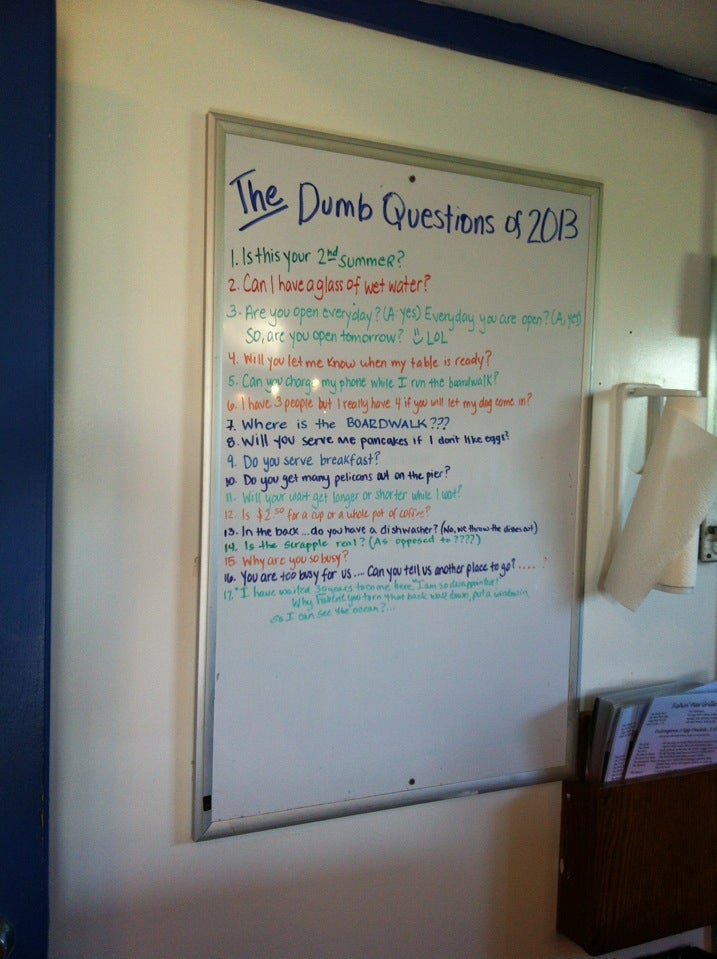 The Dumb Questions of 2013
1. Is this your 2nd SUMMER?
2. Can I have a glass of wet water?
3. Are you open everyday? (A: yes) Everyday you are open? (A: yes)
So, are you open tomorrow? LOL
4. Will you let me know when my table is ready?
5. Can you charge my phone while I run the boardwalk?
6. I have 3 people but I really have 4 if you will let my dog come in?
7. Where is the BOARDWALK???
8. Will you serve me pancakes if I don't like eggs?
9. Do you serve breakfast?
10. Do you get many pelicans out on the pier?
11. Will your wait get longer or shorter while I wait?
12. Is $2.50 for a cup or a whole pot of coffee?
13. In the back... do you have a dishwasher? (No, we throw the dishes out)
14. Is the scrapple real? (As opposed to ????)
15 Why are you so busy?
16. You are too busy for us.... Can you tell us another place to go?.....
17. "I have waited 30 years to come here" I am so disappointed!
Why haven't you torn that back wall down, put a window in,
so I can see the ocean?...